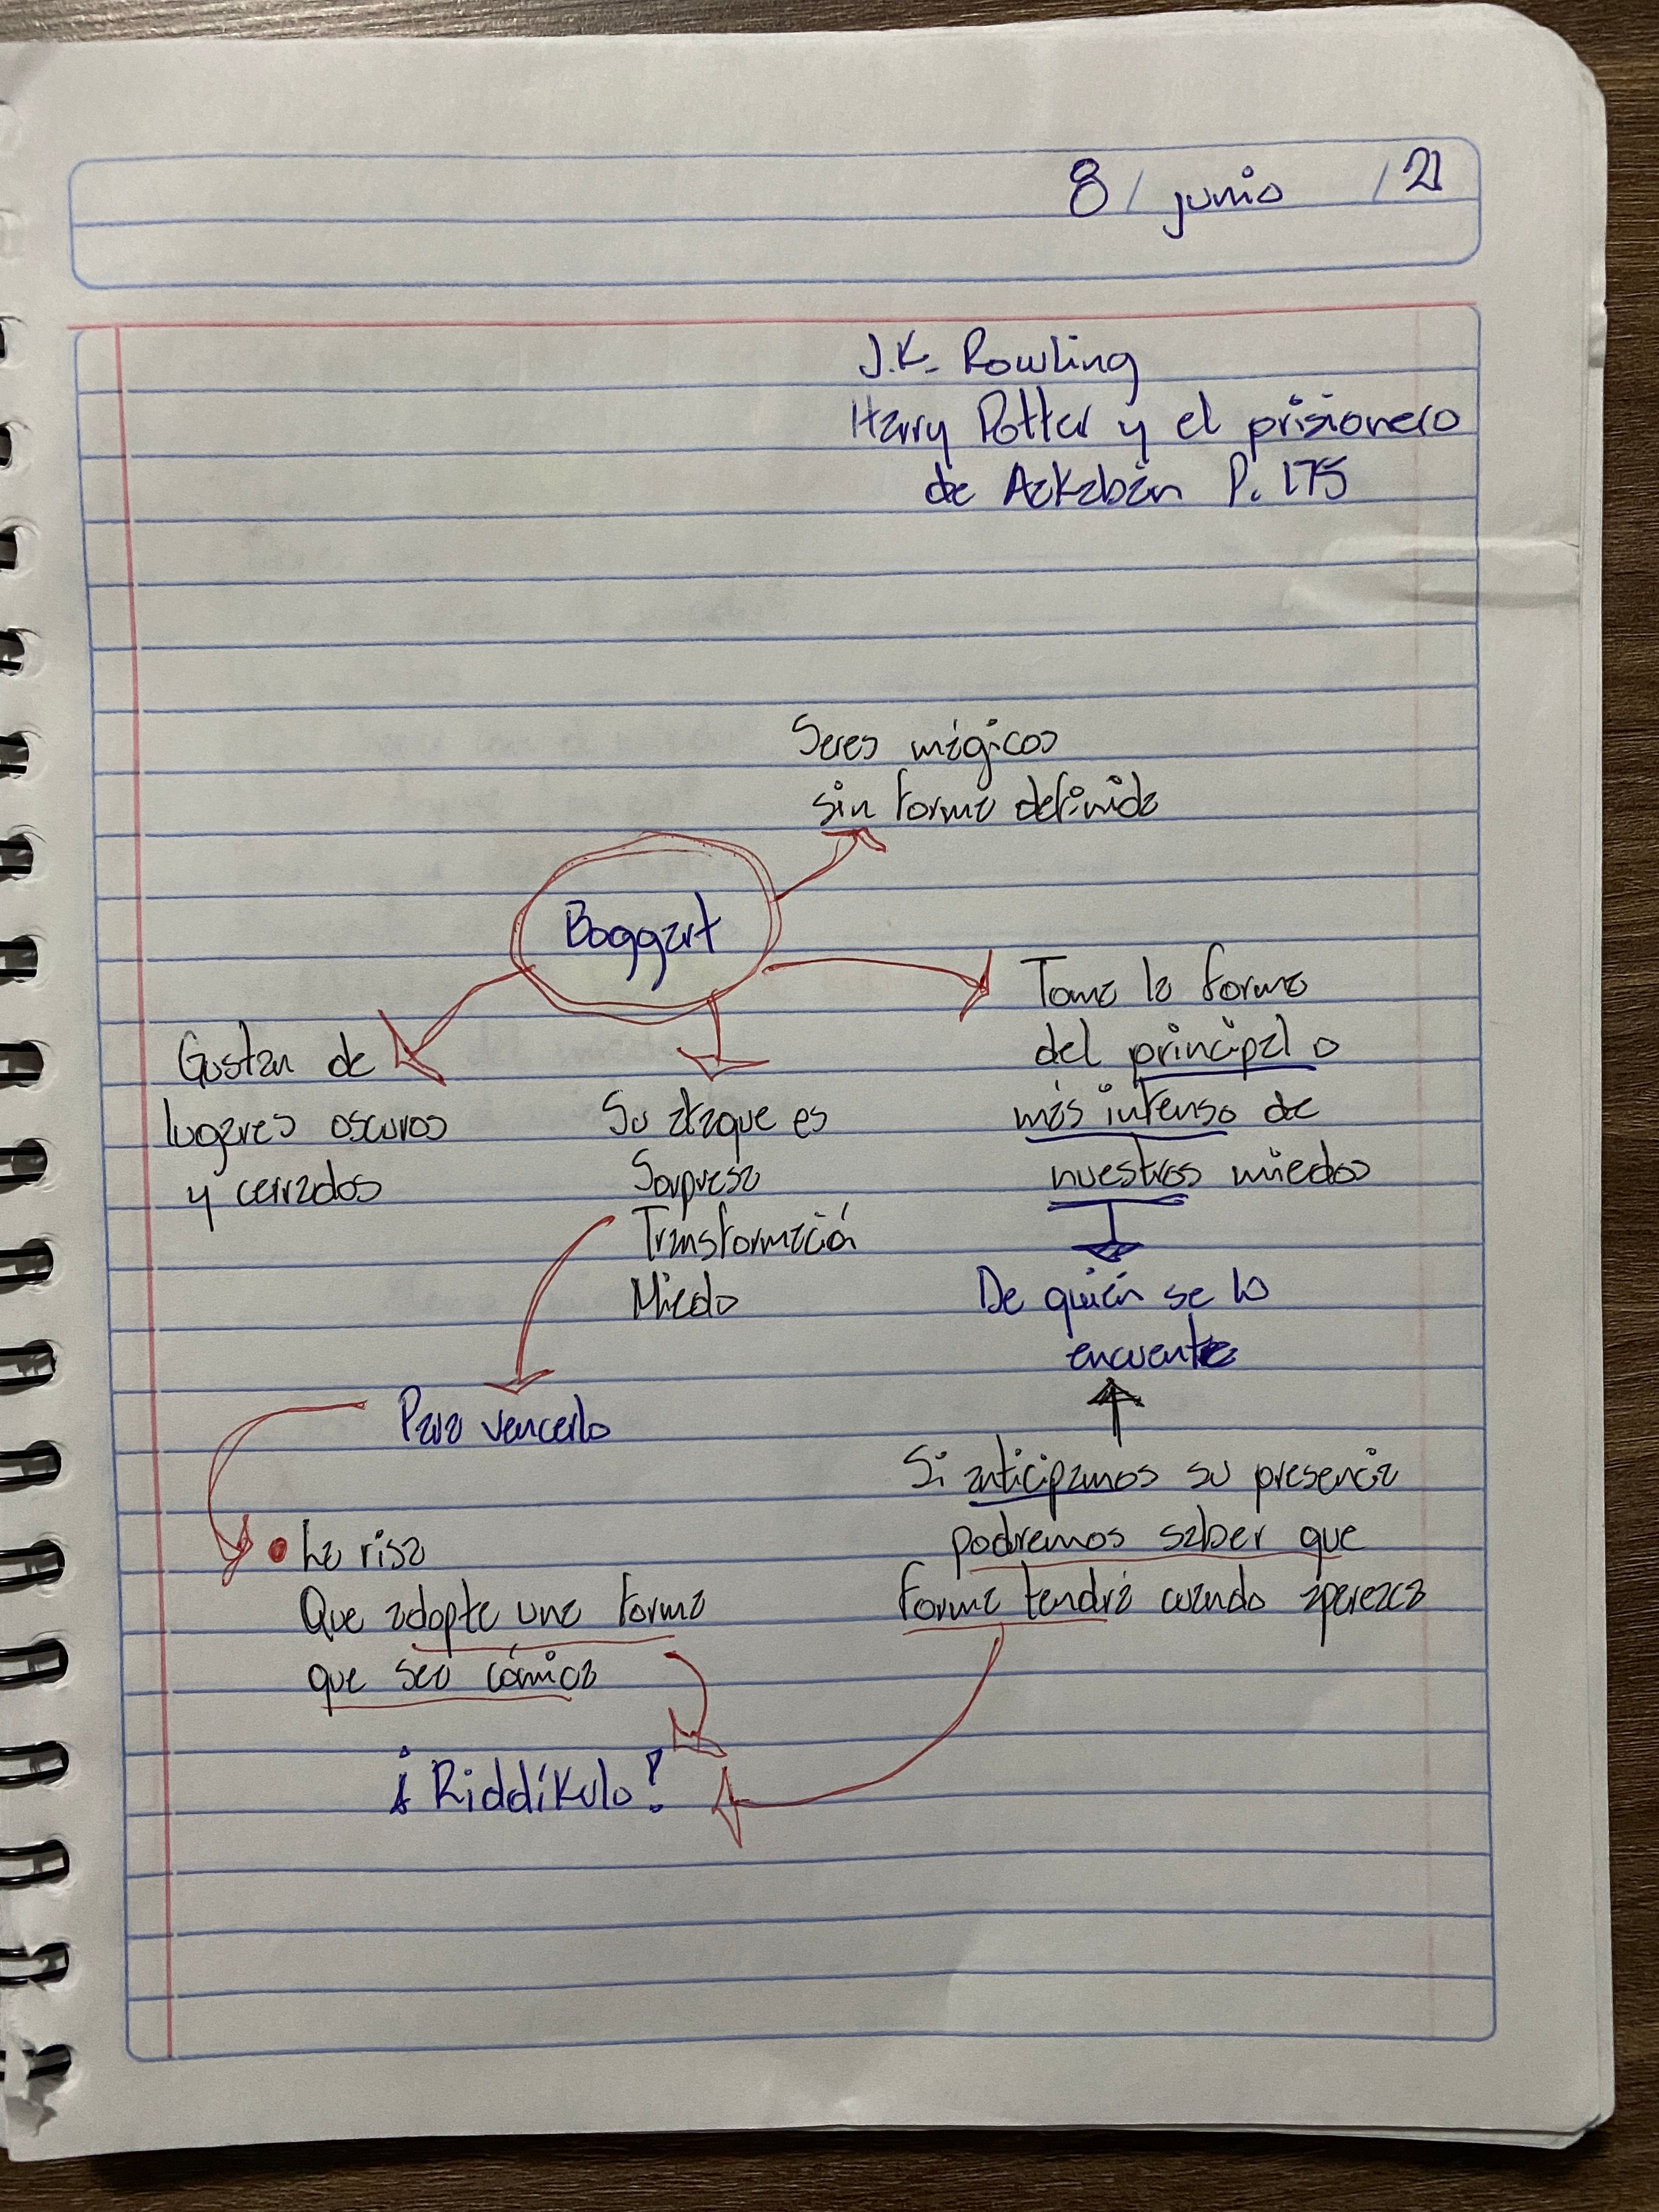 8 / junio / 21
J.K. Rowling
Harry Potter y el prisionero
de Azkabán P. 175
Seres mágicos
sin forma definida
Boggart
Toma la forma
del principal o
más intenso de
nuestros miedos
De quién se lo
encuentre
Gustan de
lugares oscuros
y cerrados
Su ataque es
Sorpresa
Transformación
Miedo
Para vencerlo
Si anticipamos su presencia
podremos saber que
forma tendrá cuando aparezca
• La risa
Que adopte una forma
que sea cómica
¡Riddíkulo!